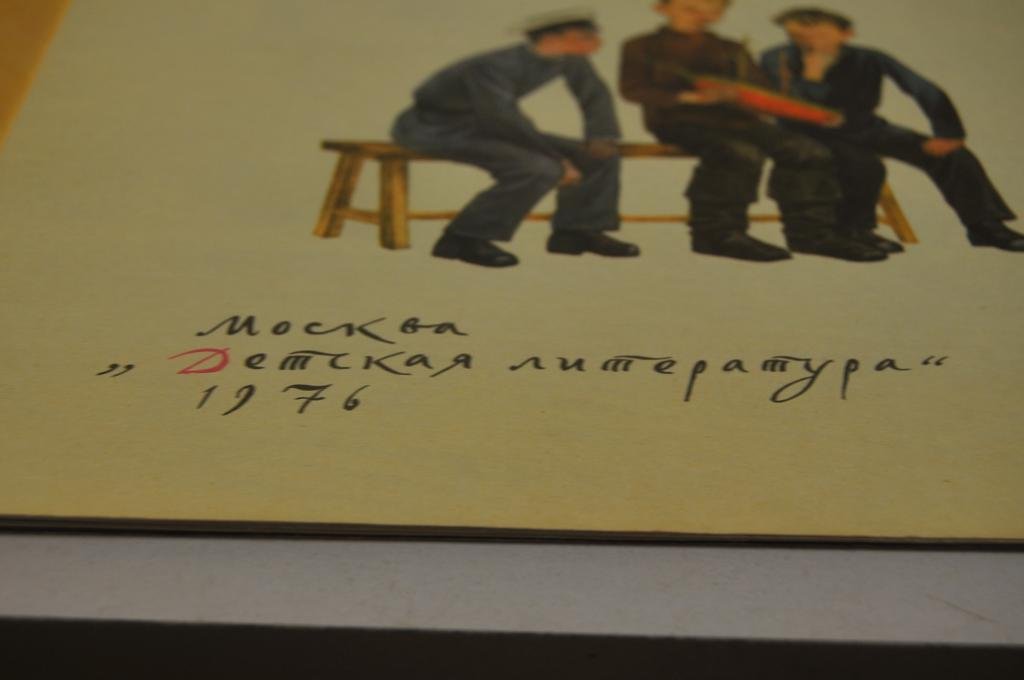 Москва
„Детская литература“
1976